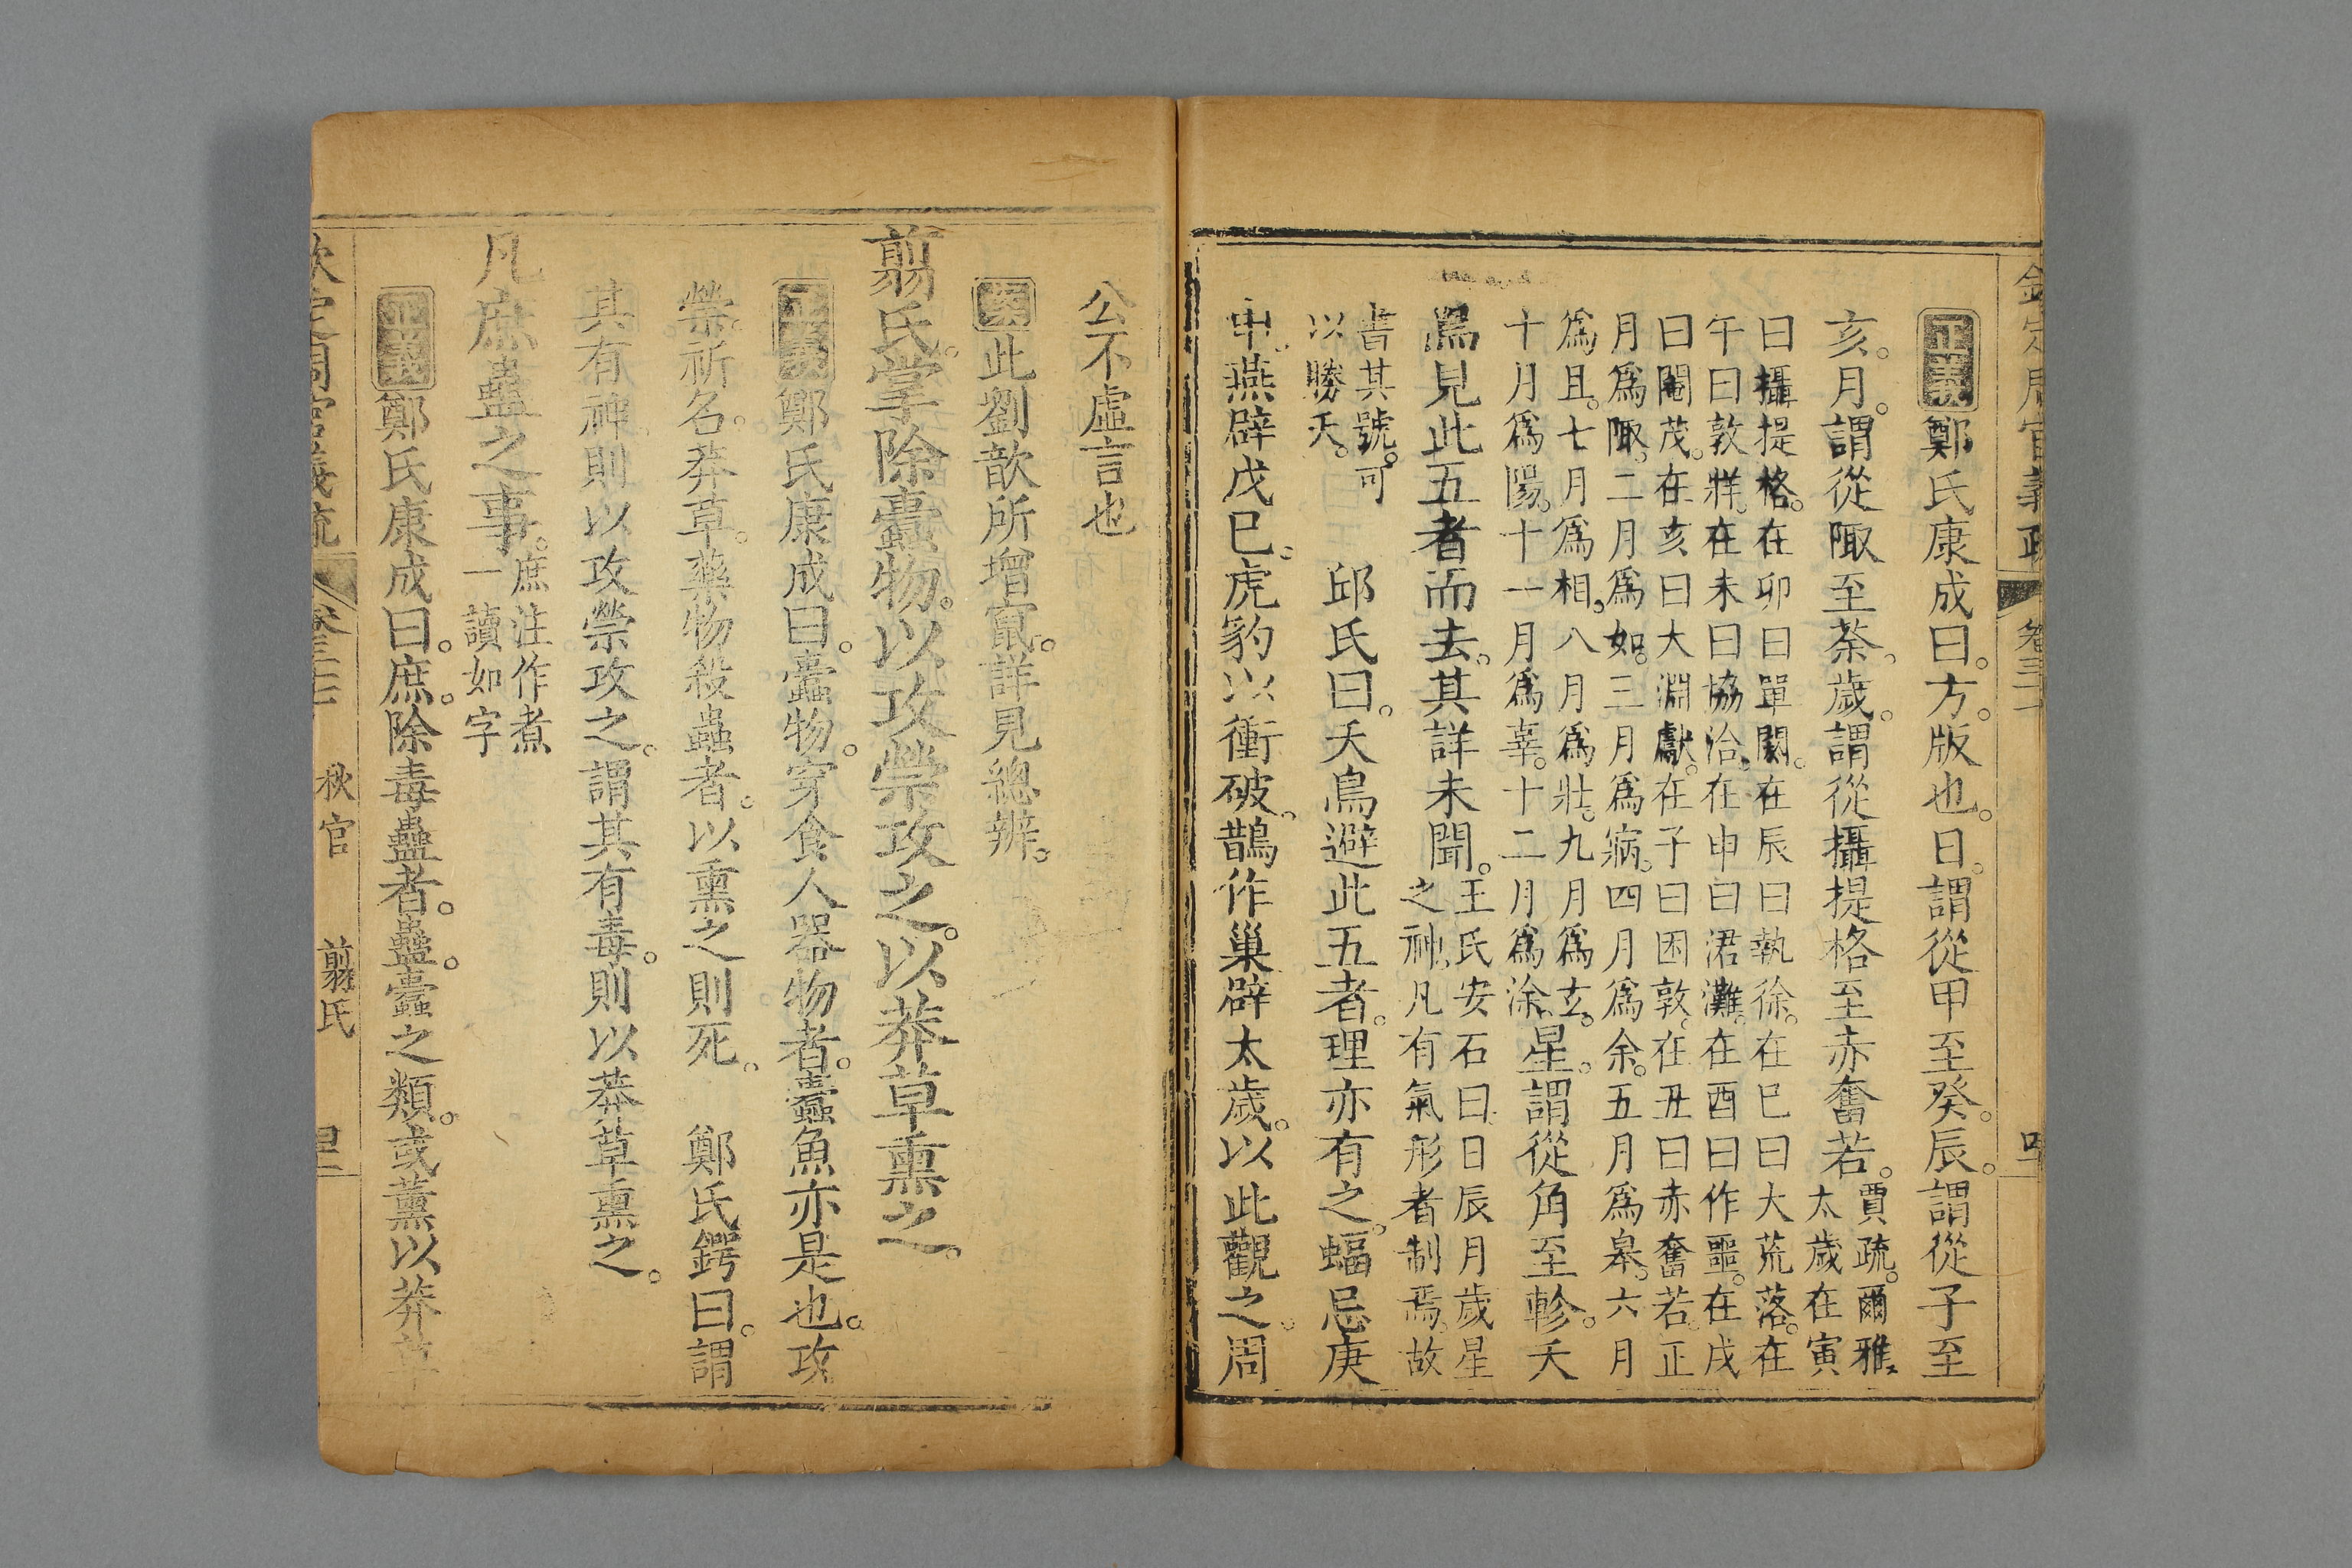 正義鄭氏康成曰。方。版也。日。謂從甲至癸。辰。謂從子至
亥。月。謂從陬至荼。歲。謂從攝提格至赤奮若。賈疏。爾雅。太歲在寅
曰攝提格。在卯曰單閼。在辰曰執徐。在巳曰大荒落。在
午曰敦牂。在未曰協洽。在申曰涒灘。在酉曰作噩。在戌
曰閹茂。在亥曰大淵獻。在子曰困敦。在丑曰赤奮若。正
月爲陬。二月爲如。三月爲病。四月爲余。五月爲皋。六月
爲且。七月爲相。八月爲壯。九月爲玄。
十月爲陽。十一月爲辜。十二月爲涂。星。謂從角至軫。夭
鳥見此五者而去。其詳未聞。王氏安石曰日辰月歲星之神。凡有氣形者制焉。故
書其號。可以勝夭。 邱氏曰。夭鳥避此五者。理亦有之。蝠忌庚
申。燕辟戊巳。虎豹以衝破。鵲作巢辟太歲。以此觀之。周
欽定周官義疏 卷三十七
公不虛言也
案此劉歆所增竄。詳見總辨。
翦氏。掌除蠹物。以攻禜攻之。以莽草熏之。
正義鄭氏康成曰。蠹物。穿食人器物者。蠹魚亦是也。攻
禜。祈名。莽草。藥物殺蟲者。以熏之則死。 鄭氏鍔曰。謂
其有神。則以攻禜攻之。謂其有毒。則以莽草熏之。
凡庶蠱之事。庶注作煮一讀如字
正義鄭氏康成曰。庶。除毒蠱者。蠱。蠹之類。或薰以莽草
欽定周官義疏 卷三十七 秋官 翦氏